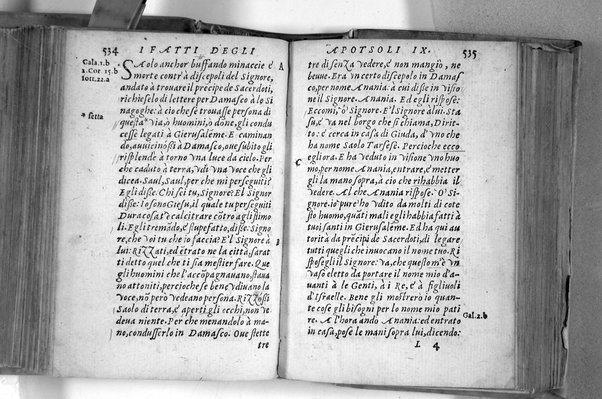 534
I FATTI DEGLI
Gala.1.b
2.Cor.15.b
sott.22.a
* setta
SAolo anchor buffando minaccie e
morte contr'à discepoli del Signore,
andato à trouare il prēcipe de Sacerdoti,
richieselo di lettere per Damasco à lo Si
nagoghe: à ciò che se trouasse persona di
questa* via, ò huomini, ò dōne, gli condu
cesse legati à Gierusalēme. E caminan
do, auuicinossi à Damasco, oue subito gli
risplendè à torno vna luce da cielo. Per
che caduto à terra, vdì vna voce che gli
dicea. Saul, Saul, per che mi perseguiti?
Egli disse. Chi sei tu, Signore? E'l Signor
disse: Io sono Giesu, il quale tu perseguiti
Dura cosa t'è calcitrare cōtro agli stimo
li. Egli tremādo, e stupefatto, disse: Signo
re, che voi tu che io faccia? E'l Signore à
lui: Rizzati, ed ētrato ne la città, sarat
ti detto quel che ti sia mestier fare. Que
gli huomini che l'accōpagnauano, stauā
no attoniti, perciò che se bene vdiuano la
voce, nō però vedeano persona. Rizzossi
Saolo di terra, e aperti gli occhi, non ve
deua niente. Per che menandolo à ma-
no, condusserlo in Damasco. Oue stette
tre
APOTSOLI IX.
535
A
tre dì senza vedere, e non mangiò, ne
beuue. Era vn certo discepolo in Damas
co, per nome Anania: à cui disse in visio
ne il Signore. Anania. Ed egli rispose:
Eccomi, ò Signore. E'l Signore à lui. Sta
sù, e và nel borgo che si chiama, Dirit-
to: e cerca in casa di Giuda, d'vno che
ha nome Saolo Tarsese. Percioche ecco
egli ora. E ha veduto in visione vno huo
mo, per nome Anania, entrare, e metter
gli la mano sopra, à ciò che rihabbia il
vedere. Al che Anania rispose. O' Si-
gnore. io pure hò vdito da molti di cote
sto huomo, quati mali egli habbia fatti à
tuoi santi in Gierusalēme. Ed ha qui au
torità da prēcipi de Sacerdoti, di legare
tutti quegli che inuocano il nome tuo. Ri
spose gli il Signore: Va, che questo m'è vn
vaso eletto da portare il nome mio d'a-
uanti à le Genti, à i Re, e à figliuoli
d'Israelle. Bene gli mostrerò io quan-
te cose gli bisogni per lo nome mio pati
re. A l'hora andò Anania: ed entrato
in casa, pose le mani sopra lui, dicendo:
Gal.2.b
L 4